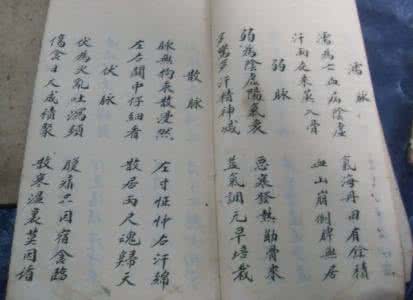 濡脉
濡為亡血病陰虛 氣海丹田有餘積
汗雨夜來蒸入骨 血山崩倒脾無居
弱脉
弱為陰虛陽氣衰 惡寒發熱筋骨來
多驚多汗精神減 益氣調元早培栽
散脉
脉無拘束散漫然 左寸怔忡右汗綿
左右關中仔細看 散居兩尺魂歸天
伏脉
伏為火亂吐瀉頻 腹痛只因宿食臨
傷食日久成積聚 散寒溫裏莫因循